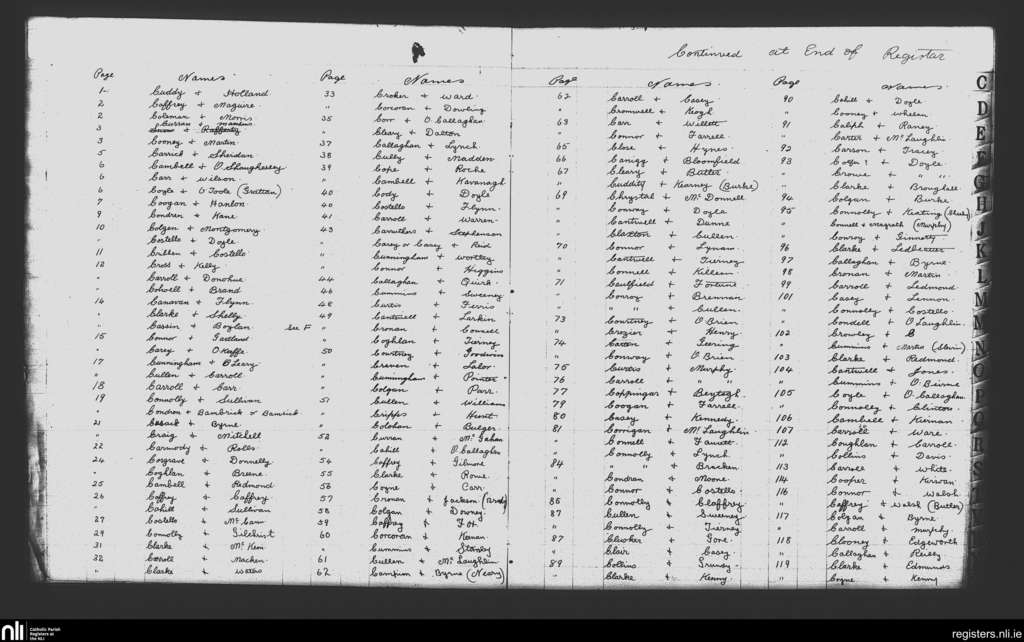 Continued at End of Register
Page Names
1 Cuddy + Holland
2 Caffrey + Maguire
2 Coleman + Morris
3 Curran +
Rafferty
3 Cooney + Martin
5 Carrick + Sheridan
6 Cambell + O'Shaughnessy
6 Carr + Wilson
6 Coyle + O'Toole (Grattan)
7 Coogan + Hanlon
9 Condren + Kane
10 Colgen + Montgomery
" Costello + Doyle
11 Cribben + Costello
12 Cross + Kelly
" Carroll + Donohue
" Colwell + Brand
14 Canavan + Flynn
" Clarke + Shelly
" Cassin + Boylan See F
15 Connor + Gartland
" Carey + O'Keffe
17 Cunningham + O'Leary
" Cullen + Carroll
18 Carroll + Carr
19 Connolly + Sullivan
" Condron + Bambrick or
21 Cusack + Byrne
" Craig + Mitchell
22 Carmody + Rolls
24 Cosgrave + Donnelly
" Coghlan + Breene
25 Cambell + Redmond
26 Caffrey + Caffrey
" Cahill + Sullivan
27 Costello + McCann
29 Connolly + Gilchrist
31 Clarke + McKeon
32 Carroll + Macken
" Clarke + Waters
Page Names
33 Croker + Ward
" Corcoran + Dowling
35 Corr + O'Callaghan
" Cleary + Dalton
37 Callaghan + Lynch
38 Cully + Madden
39 Cope + Roche
" Cambell + Kavanagh
40 Cody + Doyle
40 Costello + Flynn
41 Carroll + Warren
43 Carruthers + Stephenson
" Carey or Casey + Reid
" Cunningham + Wortley
" Connor + Higgins
44 Callaghan + Quirk
46 Cummins + Sweeney
48 Curtis + Ferris
49 Cantwell + Larkin
" Cronan + Connell
" Coghlan + Tierney
50 Courtney + Goodwin
" Craven + Lalor
" Cunningham + Pointer
" Colgan + Parr
51 Cullen + Williams
" Cripps + Hunt
" Colohan + Bulger
52 Curran + McGahan
" Cahill + O'Callaghan
54 Caffrey + Gilmore
55 Clarke + Rowe
56 Coyne + Carr
57 Cronan + Jackson
58 Colgan + Downey
59 Caffray +
60 Corcoran + Keenan
" Cummins + Stanley
61 Cullen + McLaughlin
62 Campion + Byrne (Neary)
Page Names
62 Carroll + Casey
" Cromwell + Keogh
63 Carr + Willett
" Connor + Farrell
65 Close + Hynes
66 Canigg + Bloomfield
67 Cleary + Butler
" Cuddity + Kearney (Burke)
69 Chrystal + McDonnell
" Conway + Doyle
" Cantwell + Dunne
" Claxton + Cullen
70 Connor + Lynam
" Cantwell + Tierney
" Connell + Killeen
71 Caulfield + Fortune
" Conroy + Brennan
" " " + Cullen
73 Courtney + O'Brien
" Crozier + Henry
74 Carten + Geering
" Conway + O'Brien
75 Curtis + Murphy
76 Carroll + " "
77 Coppingar + Beytagh
78 Coogan + Farrell
80 Casey + Kennedy
81 Corrigan + McLaughlin
" Connell + Fawcett
" Connolly + Lynch
84 " " + Bracken
" Condran + Moone
" Connor + Costello
86 Connolly + Claffrey
87 Cullen + Sweeney
" Connolly + Tierney
87 Clucker + Gore
" Clair + Casey
89 Collins + Grundy
" Clarke + Kenny
Page Names
90 Cahill + Doyle
" Cooney + Whelan
91 Calph + Raney
" Carter + McLaughlin
92 Carson + Tracey
93 + Doyle
" Crowe + " "
" Clarke + Broughall
94 Colgan + Burke
95 Connolly + Keating
" Connell + Megrath (Murphy)
" Conroy + Ginnetty
96 Clarke + Ledbetter
97 Callaghan + Byrne
98 Cronan + Martin
99 Carroll + Ledmond
101 Casey + Lennon
" Connolly + Costello
" Condell + O'Laughlin
102 Crowley + B
" Cummins + Martin (Slevin)
103 Clarke + Redmond
104 Cantwell + Jones
" Cummins + O'Beirne
105 Coyle + O'Callaghan
" Connolly + Clinton
106 Cambell + Kiernan
107 Carroll + Ware
112 Coughlan + Carroll
" Collins + Davis
113 Carroll + White
114 Cooper + Kirwan
116 Connor + Walsh
" Caffrey + Walsh (Butler)
117 Colgan + Byrne
" Carroll + Murphy
118 Clooney + Edgeworth
" Callaghan + Reilly
119 Clarke + Edmunds
" Coyne + Kenny
C
D
E
F
G
H
J
K
L
M
N
O
P
Q
R
S
nli
Catholic Parish
Registers at
the NLI
registers.nli.ie